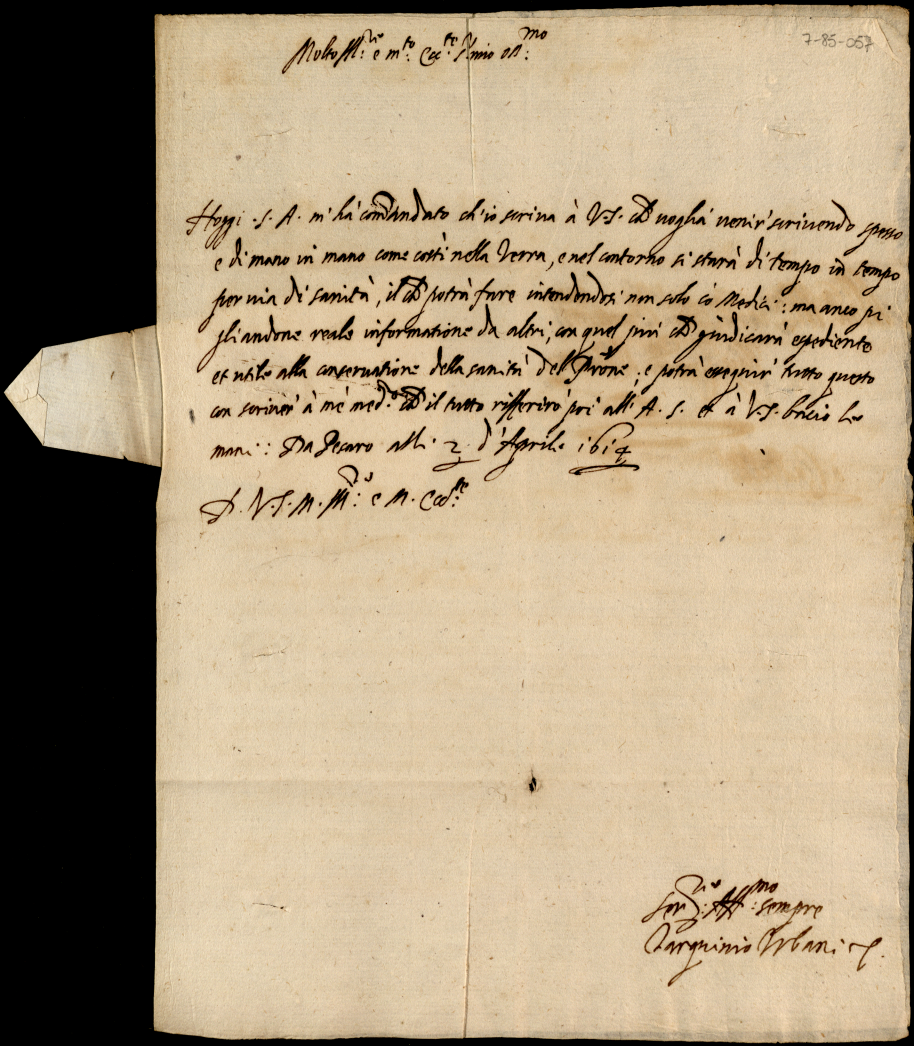 7-85-057
Molto Ill.re e m.to Ecc.te S.r mio oss.mo
Hoggi .S. A. m'hà comandato ch'io scriva à V.S. che voglia venir scrivendo spesso
e di mano in mano come costì nella Terra, e nel contorno si starà di tempo in tempo
per via di sanità, il che potrà fare intendendosi non solo co Medici: ma anco pi
gliandone reale informatione da altri, con quel più che giudicarà espediente
et utile alla conservatione della sanità delle Persone; e potrà esseguir tutto questo
con scriver à mè med.o che il tutto riferirò poi all' A. S. et à V.S. bacio le
mani: Da Pesaro alli 2 d'Aprile 1614
D. V.S. M. Ill.re e M. Ecc.te
Ser.re Aff.mo sempre
Tarquinio Urbani